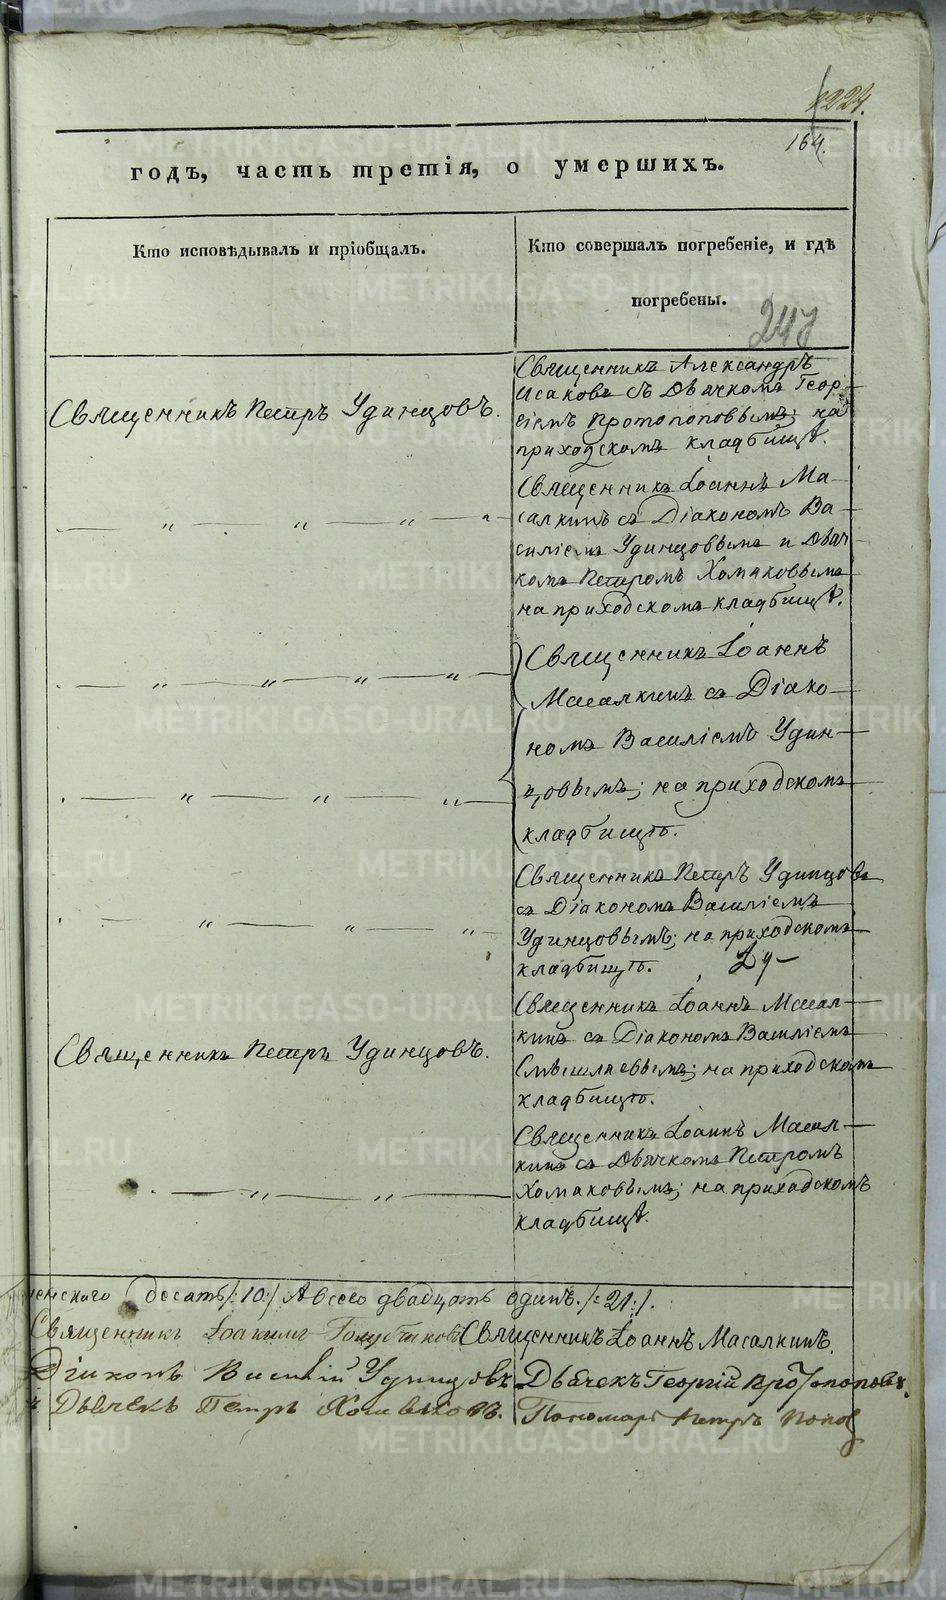 224.
164.
годъ, часть третія, о умершихъ.
Кто исповѣдывалъ и пріобщалъ.
Кто совершалъ погребеніе, и гдѣ
погребены.
Священникъ Петръ Удинцовъ.
Священникъ Александръ
Исаковъ съ Дьячкомъ Геор-
гіемъ Протопоповымъ; на
приходскомъ кладбищѣ.
— „ — „ — „ — „ —
Священникъ Іоаннъ Ма-
салкинъ съ Діакономъ Ва-
силіемъ Удинцовымъ и Дьяч-
комъ Петромъ Хомяковымъ
на приходскомъ кладбищѣ.
— „ — „ — „ — „ —
— „ — „ — „ —
Священникъ Іоаннъ
Масалкинъ съ Діако-
номъ Василіемъ Удин-
цовымъ; на приходскомъ
кладбищѣ.
— „ — „ — „ —
Священникъ Петръ Удинцовъ
съ Діакономъ Василіемъ
Удинцовымъ; на приходскомъ
кладбищѣ.
Священникъ Петръ Удинцовъ.
Священникъ Іоаннъ Масал-
кинъ съ Діакономъ Василіемъ
Смышляевымъ; на приходскомъ
кладбищѣ.
— „ — „ —
Священникъ Іоаннъ Масал-
кинъ съ Дьячкомъ Петромъ
Хомяковымъ; на приходскомъ
кладбищѣ.
десять /:10:/ А всего двадцать одинъ. /:21:/.
Священникъ Іоакимъ Голубчиковъ Священникъ Іоаннъ Масалкинъ.
Діаконъ Василій Удинцовъ Дьячекъ Георгій Протопоповъ.
Дьячекъ Петръ Хомяковъ. Пономарь Петръ Попов
METRIKI.GASO-URAL.RU